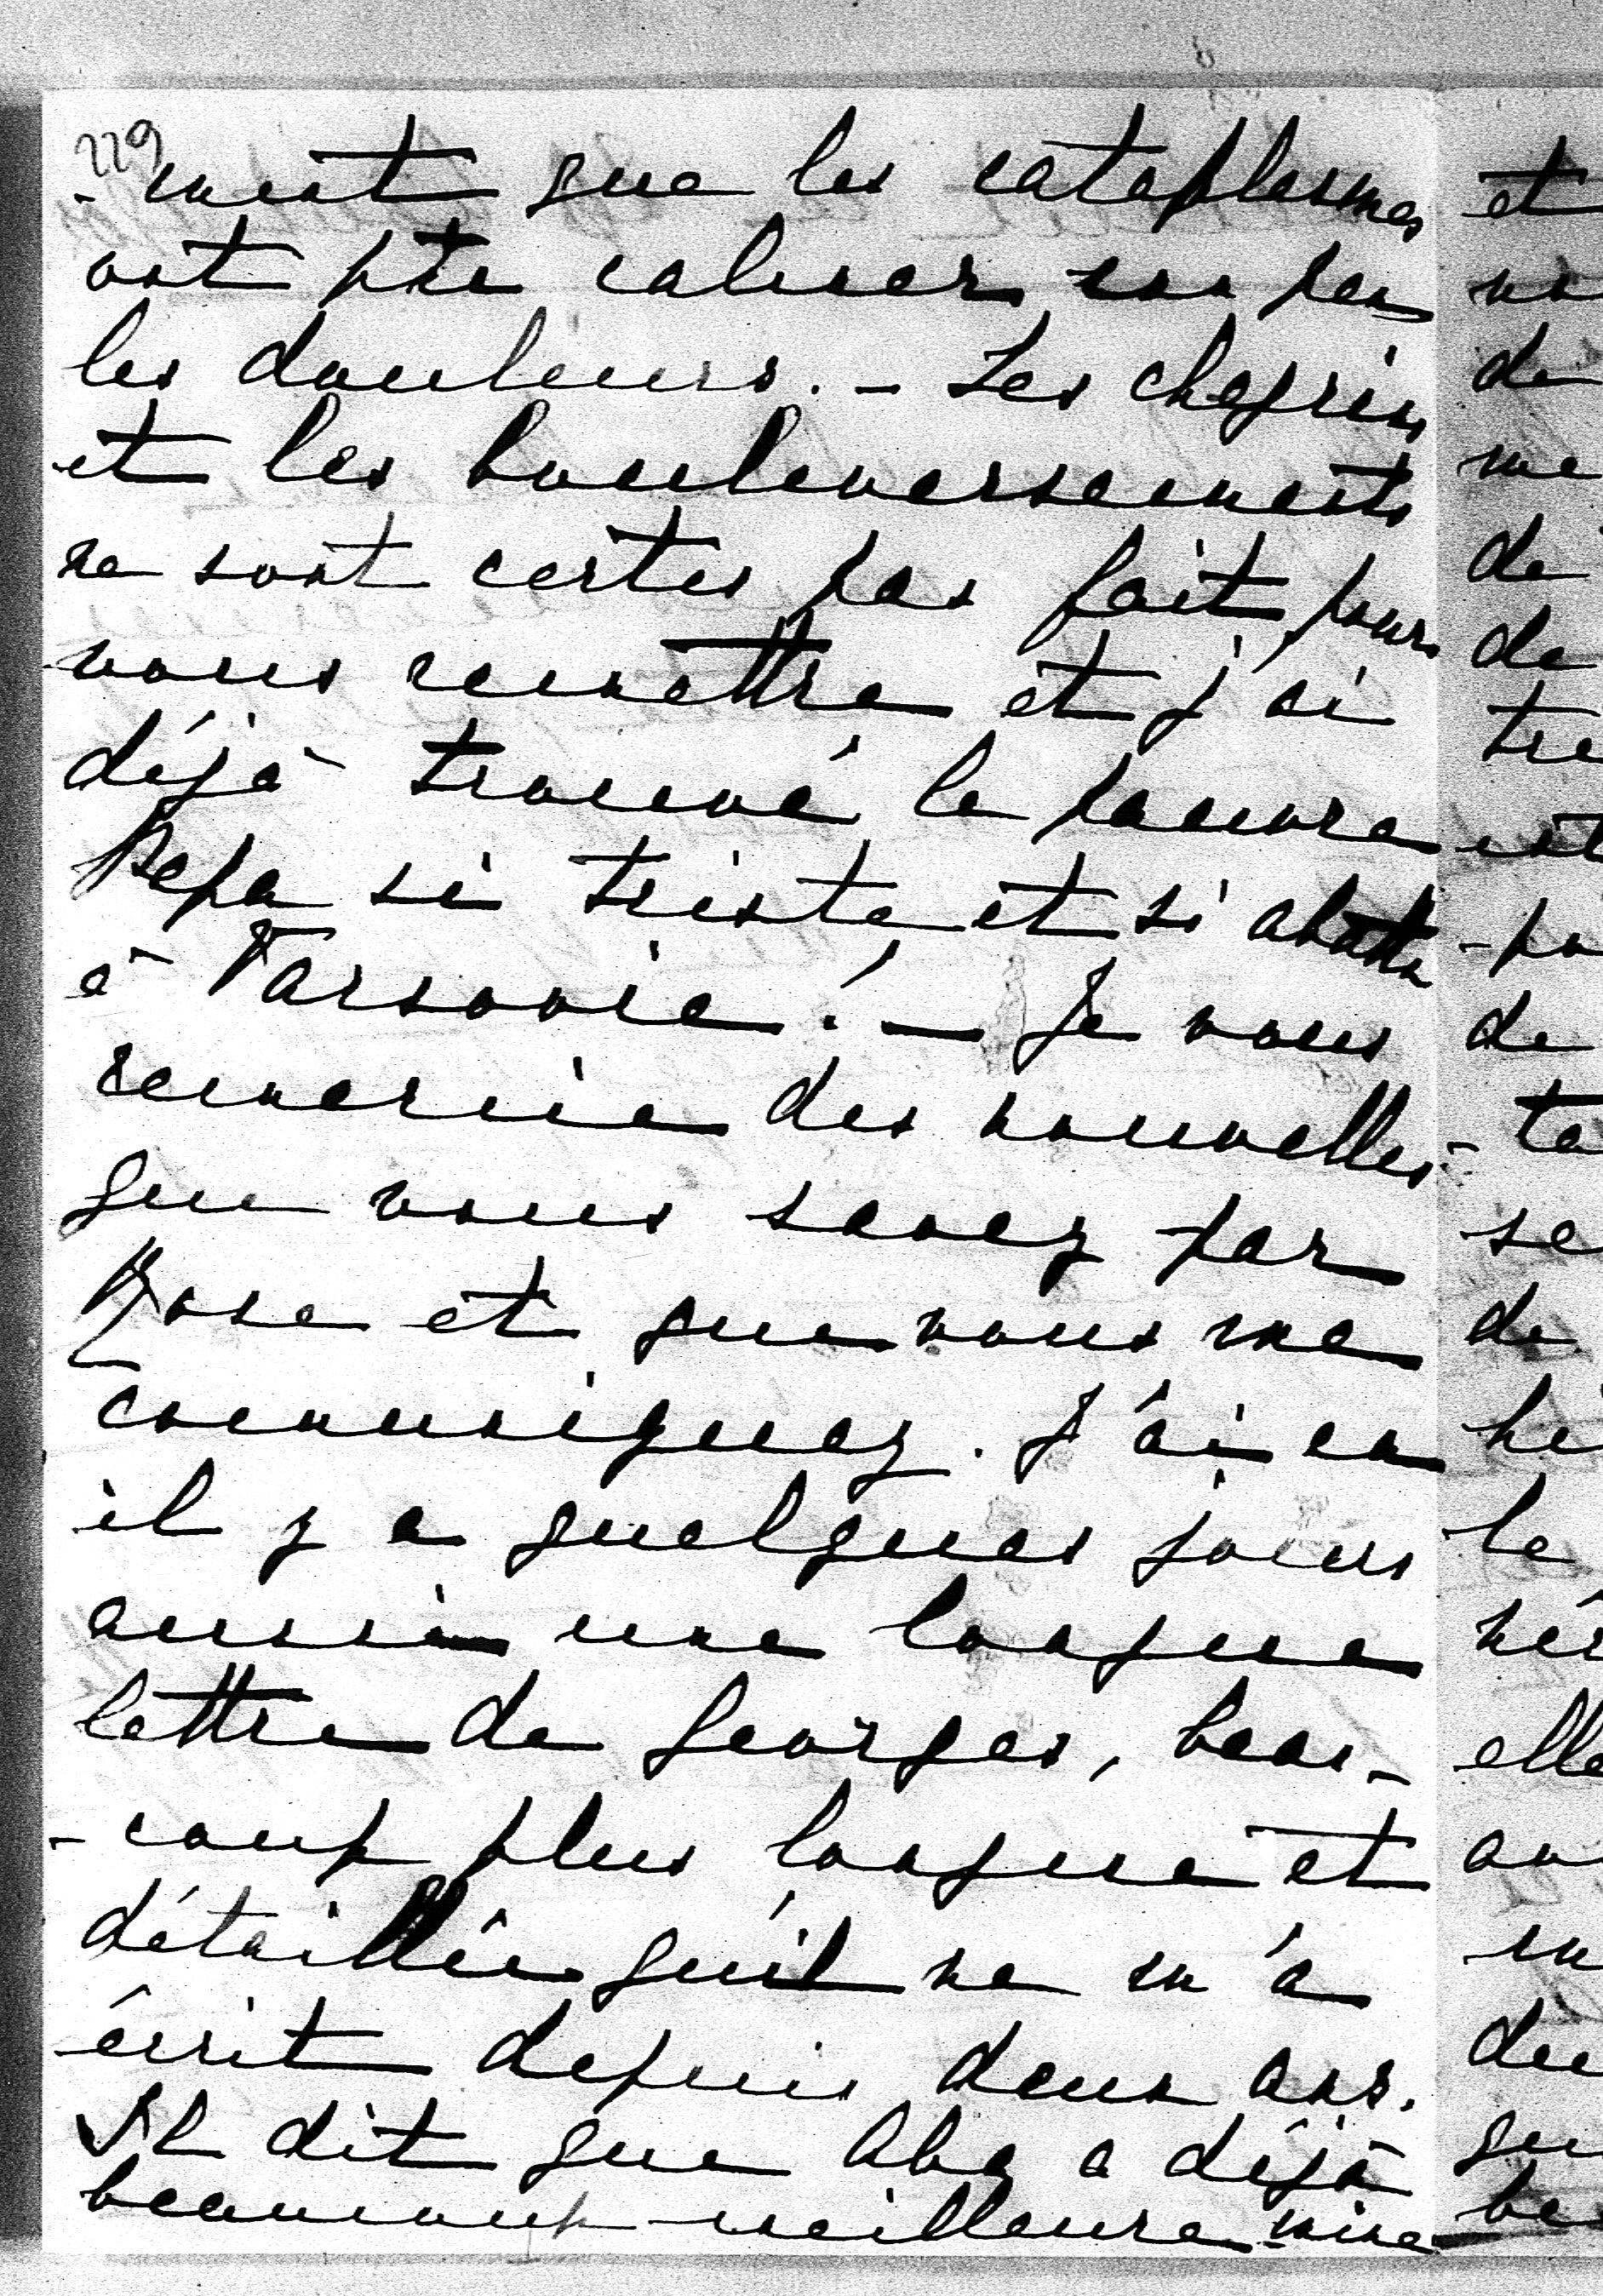 229
- ment que les cataplasmes
ont pu calmer un peu
les douleurs. - Les chagrins
et les bouleversements
ne sont certes pas fait pour
vous remettre et j'ai
déjà trouvé le pauvre
Papa si triste et si abattu
à Varsovie! - Je vous
remercie des nouvelles
que vous savez par
Rose et que vous me
communiquez. J'ai eu
il y a quelques jours
aussi une longue
lettre de Georges, beau-
- coup plus longue et
détaillée qu'il ne m'a
écrit depuis deux ans.
Il dit que Abaz a déjà
beaucoup meilleure mine
et
de
me
de
de
tre
est
de
ta
se
de
le
elle